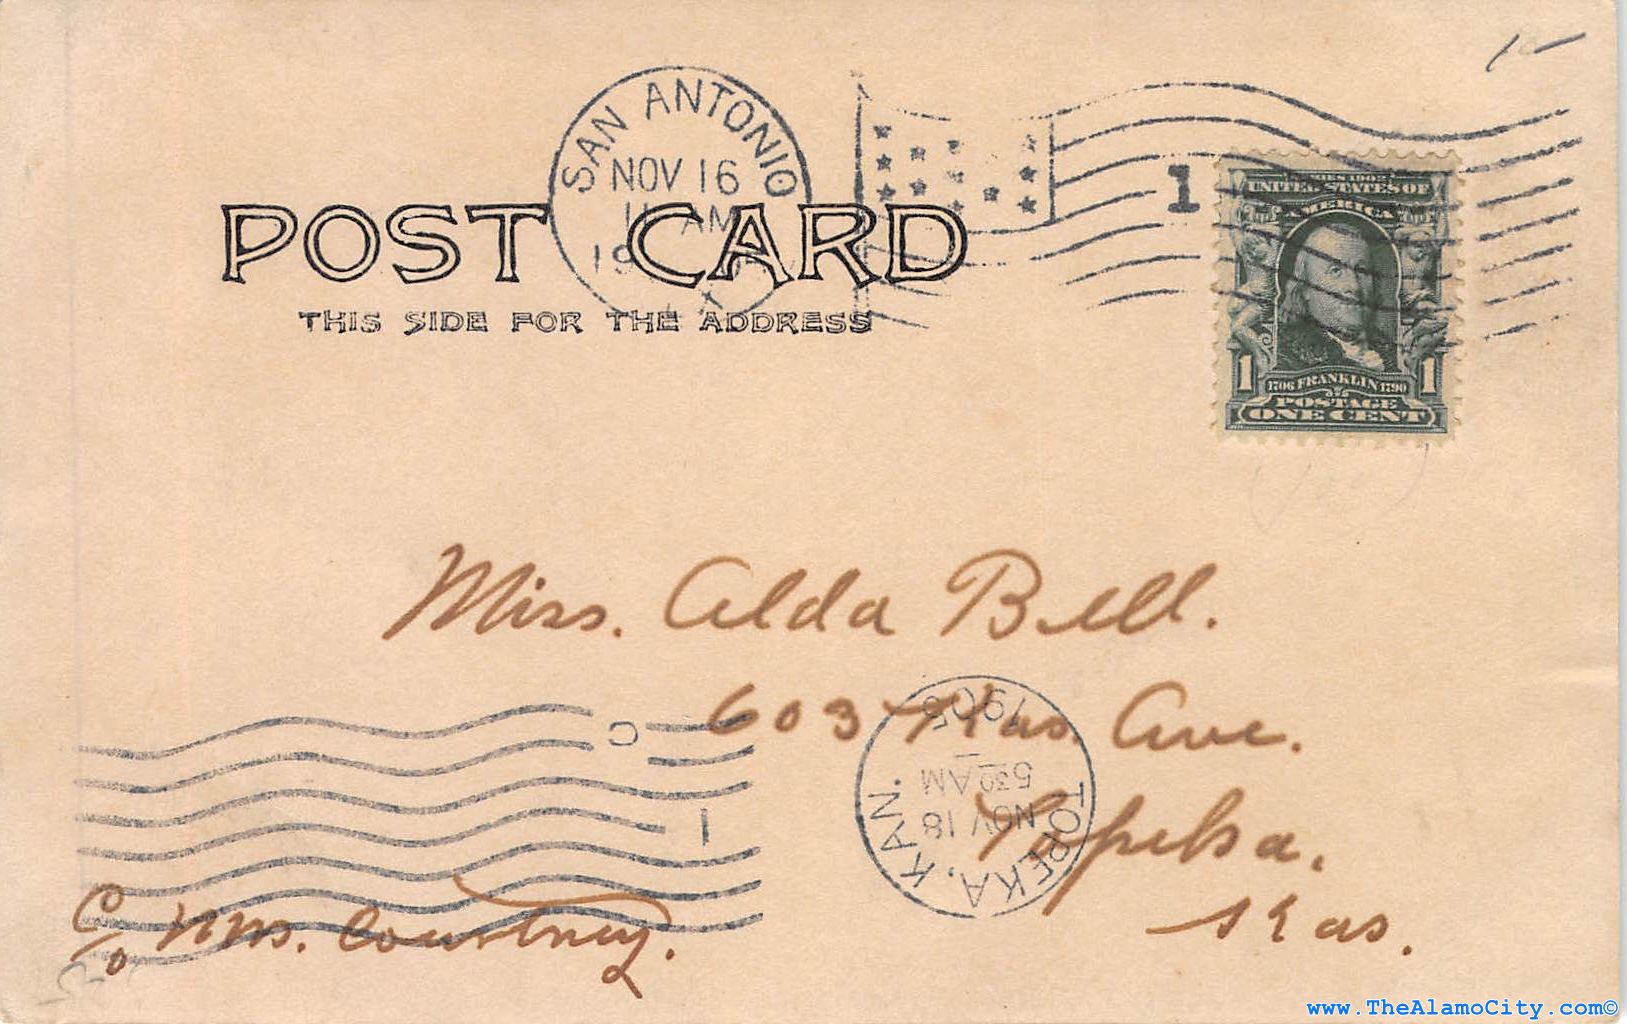 SAN ANTONIO
NOV 16
11 AM
19
1
POST CARD
THIS SIDE FOR THE ADDRESS
SERIES 1902
UNITED STATES OF
AMERICA
1 1706 FRANKLIN 1790 1
POSTAGE
ONE CENT
Miss. Alda Bell.
603 Kas. Ave.
Topeka.
Kas.
TOPEKA, KAN.
NOV 18
5 30 AM
1905
C
1
C/o Mrs. Courtney.
www.TheAlamoCity.com©